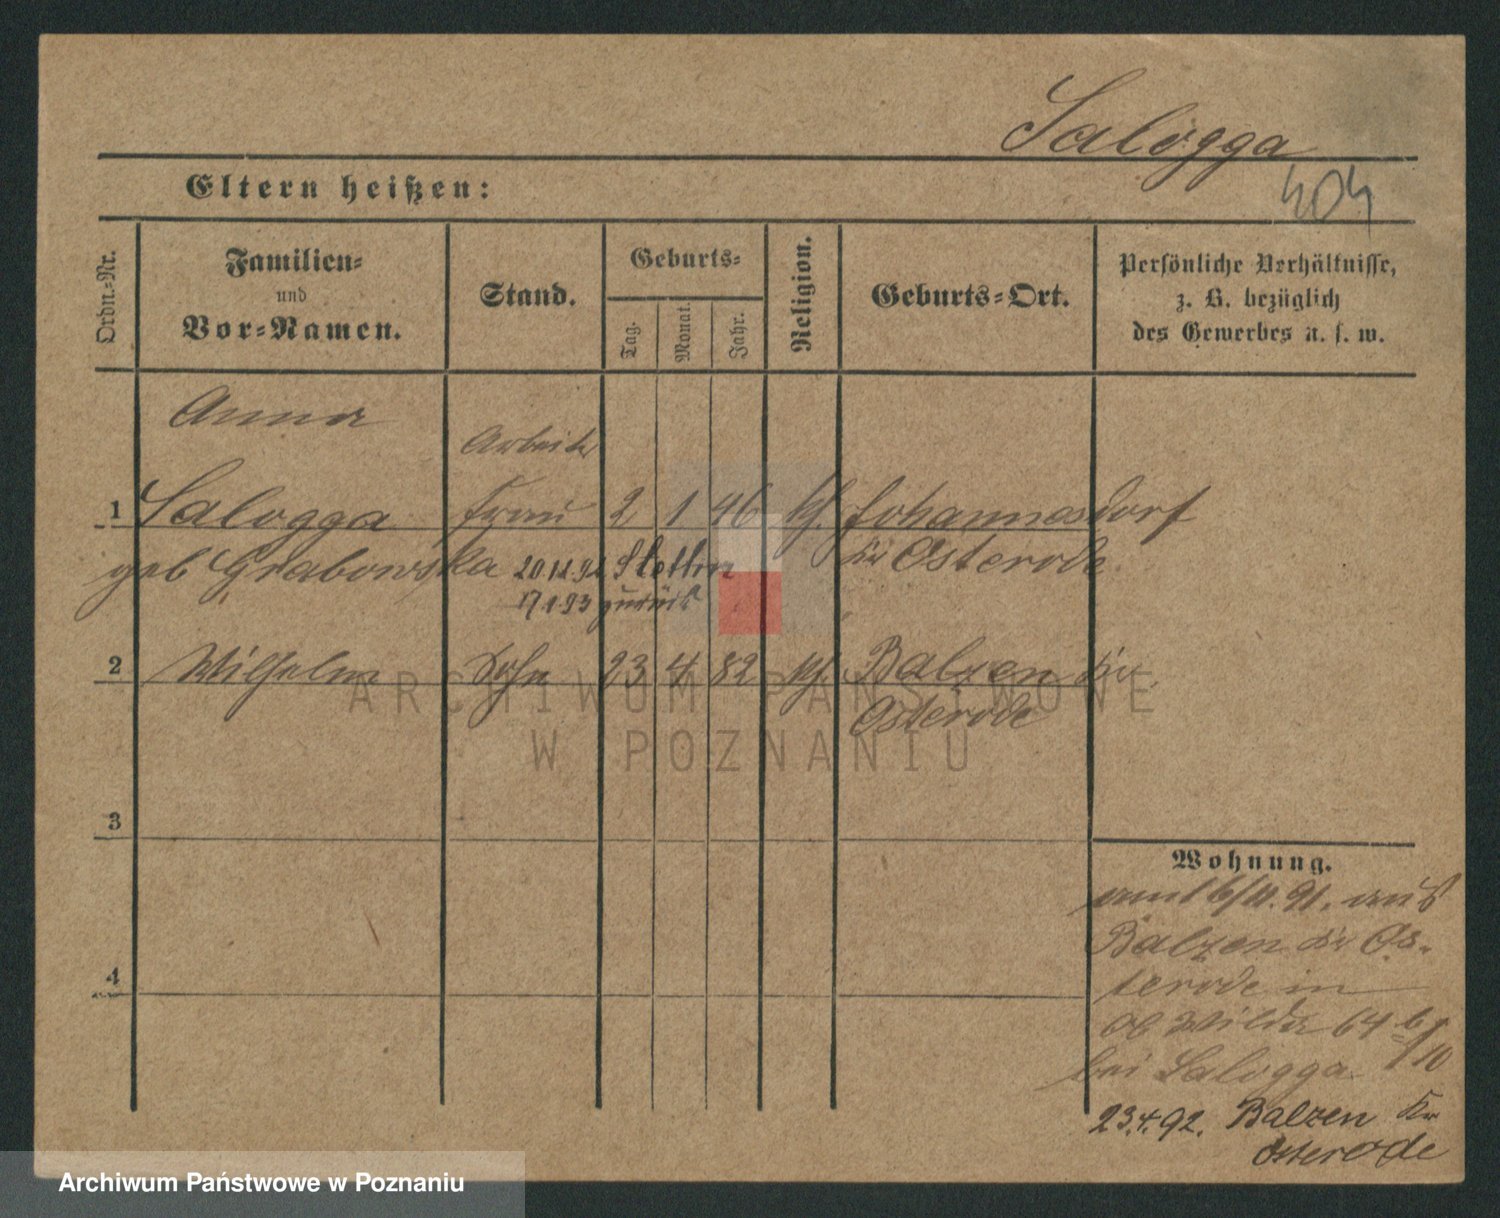 Salogga
404
Eltern heißen:
Ordn.-Nr.
Familien-
und
Vor-Namen.
Stand.
Geburts-
Tag.
Monat.
Jahr.
Religion.
Geburts-Ort.
Persönliche Verhältnisse,
z. B. bezüglich
des Gewerbes u. s. w.
Anna
Arbeiter
1 Salogga Frau 2 1 46 Johannesdorf
geb Grabowska 20.11.92 Stettin Kr Osterode.
17 1 93 zurück
2 Wilhelm Sohn 23 4 82 Balzen Kr.
Osterode
3
4
Wohnung.
16/11.91. aus
Balzen Kr Os-
terode in
Ob Wilda 64 6/10
bei Salogga
23.4.92. Balzen Kr
Osterode
ARCHIWUM PAŃSTWOWE
W POZNANIU
Archiwum Państwowe w Poznaniu